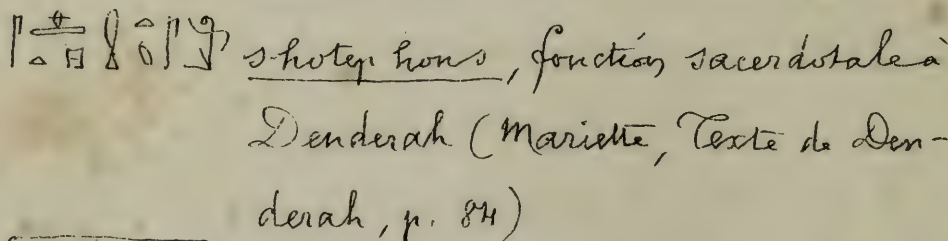 𓋴𓊵𓏏𓊪𓎛𓈖𓏏𓋴 s-hotep hons, fonction sacerdotale à
Denderah (Mariette, Texte de Den-
derah, p. 84)